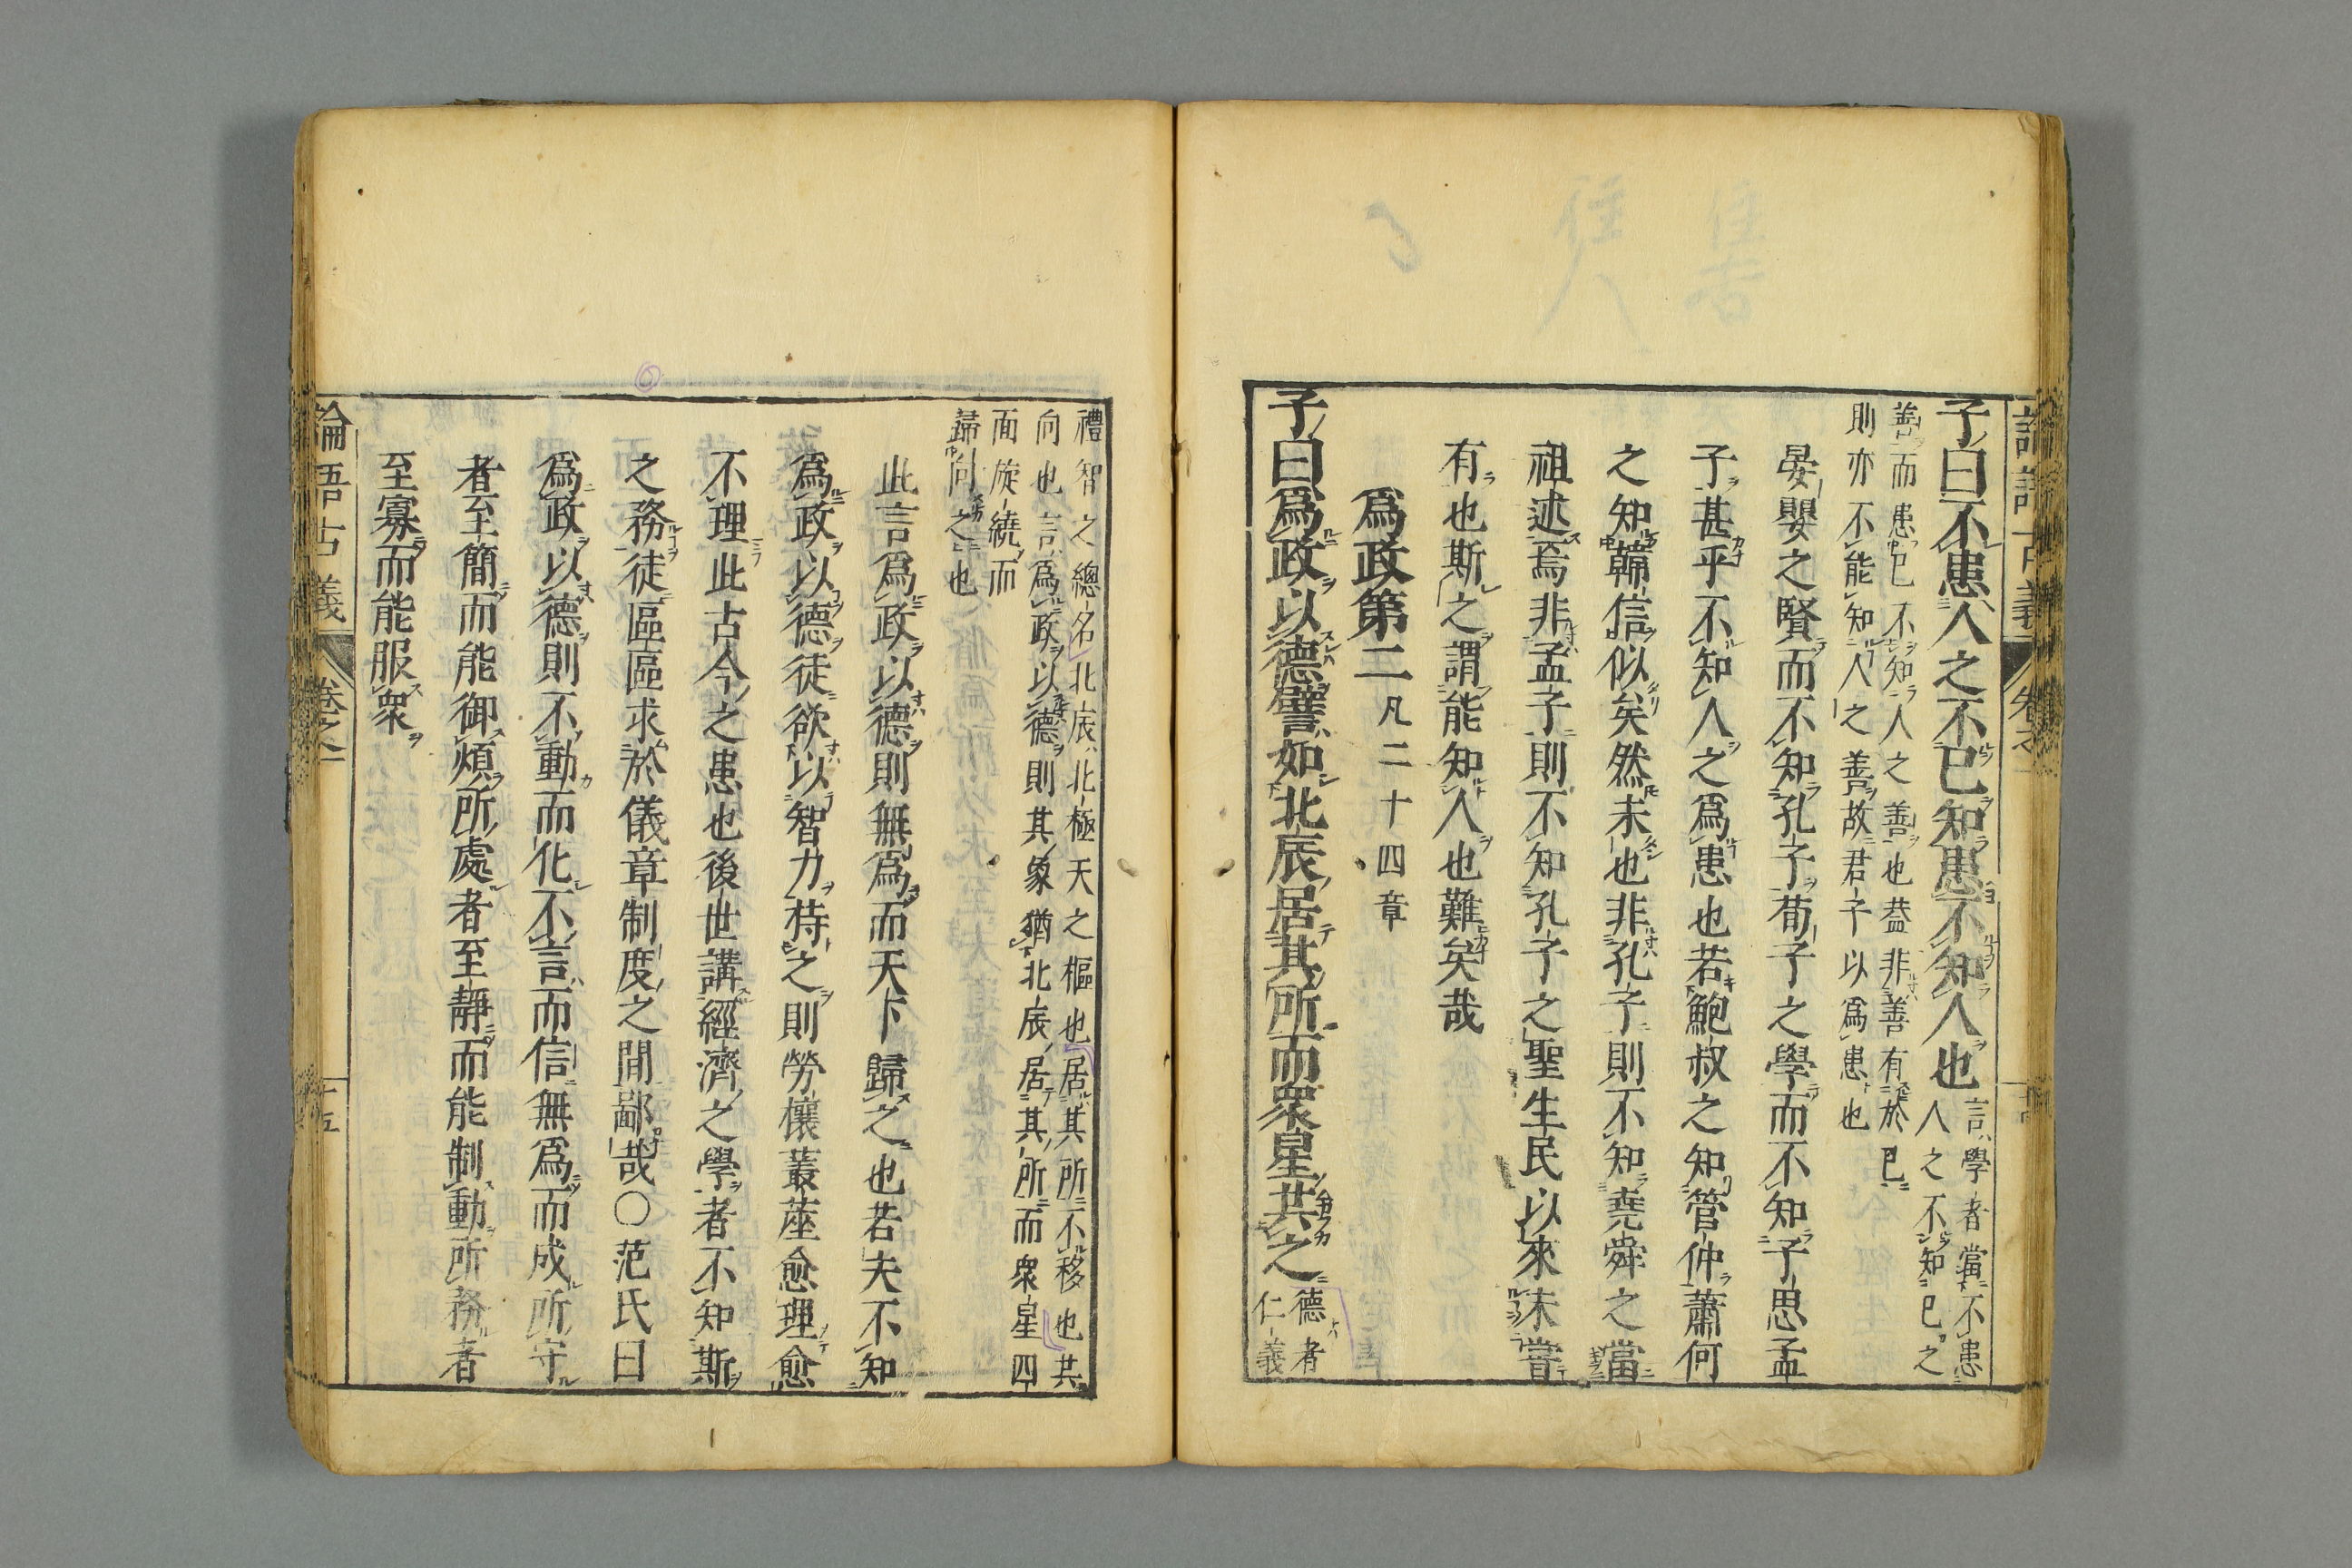 論語古義 卷之一 十四
子曰不患人之不己知患不知人也 言學者當不患
人之不知己之
善而患己不知人之善也葢非善有於己
則亦不能知人之善故君子以爲患也
晏嬰之賢而不知孔子荀子之學而不知子思孟
子甚乎不知人之爲患也若鮑叔之知管仲蕭何
之知韓信似矣然未也非孔子則不知堯舜之當
祖述焉非孟子則不知孔子之聖生民以來未嘗
有也斯之謂能知人也難矣哉
爲政第二 凡二十四章
子曰爲政以德譬如北辰居其所而衆星共之 德者
仁義
禮智之總名北辰北極天之樞也居其所不移也共
向也言爲政以德則其象猶北辰居其所而衆星四
面旋繞而
歸向之也
此言爲政以德則無爲而天下歸之也若夫不知
爲政以德徒欲以智力持之則勞攘叢蓙愈理愈
不理此古今之患也後世講經濟之學者不知斯
之務徒區區求於儀章制度之間鄙哉○范氏曰
爲政以德則不動而化不言而信無爲而成所守
者至簡而能御煩所處者至靜而能制動所務者
至寡而能服衆
論語古義 卷之一 十五